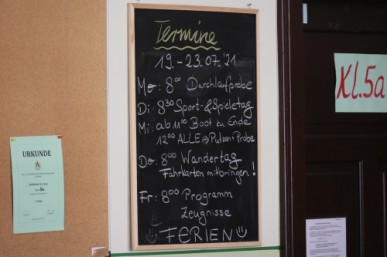 Termine
19.-23.07.'21
Mo: 8⁰⁰ Durchlaufprobe
Di: 8³⁰ Sport-&Spieletag
Mi: ab 11⁰⁰ Boot zu Ende
12⁰⁰ ALLE → Pulsmi Probe
Do: 8⁰⁰ Wandertag
Fahrkarten mitbringen!
Fr: 8⁰⁰ Programm
Zeugnisse
FERIEN
Kl.5a
URKUNDE